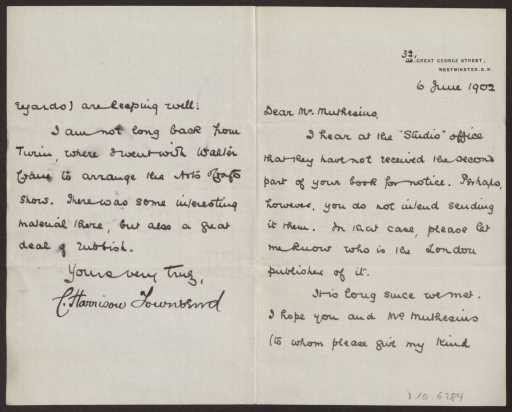 32, GREAT GEORGE STREET,
WESTMINSTER. S.W.
6 June 1902
Dear Mr. Muthesius,
I hear at the "Studio" office
that they have not received the second
part of your book for notice. Perhaps,
however, you do not intend sending
it them. In that case, please let
me know who is the London
publisher of it.
It is long since we met.
I hope you and Mrs Muthesius
(to whom please give my kind
regards) are keeping well.
I am not long back from
Turin, where I went with Walter
Crane to arrange the Arts & Crafts
show. There was some interesting
material there, but also a great
deal of rubbish.
Yours very truly,
C. Harrison Townsend